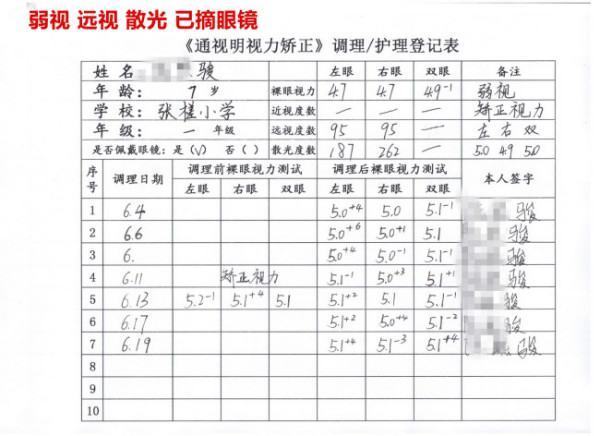 弱视 远视 散光 已摘眼镜
《通视明视力矫正》调理/护理登记表
姓名 骏 左眼 右眼 双眼 备注
年龄: 7 岁 裸眼视力 4.7 4.7 4.9⁻¹ 弱视
学校: 张槎小学 近视度数 — — — 矫正视力
年级: 一 年级 远视度数 95 95 — 左 右 双
是否佩戴眼镜: 是(√) 否( ) 散光度数 187 262 — 5.0 4.9 5.0
序号 调理日期 调理前裸眼视力测试 调理后裸眼视力测试 本人签字
左眼 右眼 双眼 左眼 右眼 双眼
1 6.4 5.0⁺⁴ 5.0 5.1⁻¹ 骏
2 6.6 5.0⁺⁶ 5.0⁺¹ 5.1 骏
3 6. 5.0⁺⁴ 5.0⁻¹ 5.1⁻¹ 骏
4 6.11 矫正视力 5.1⁻¹ 5.0⁺³ 5.1⁺¹ 骏
5 6.13 5.2⁻¹ 5.1⁺⁴ 5.1 5.1⁺² 5.1 5.1⁻¹ 骏
6 6.17 5.1⁺² 5.0⁺⁴ 5.1⁻² 骏
7 6.19 5.1⁺⁴ 5.1⁻³ 5.1⁺⁴ 骏
8
9
10